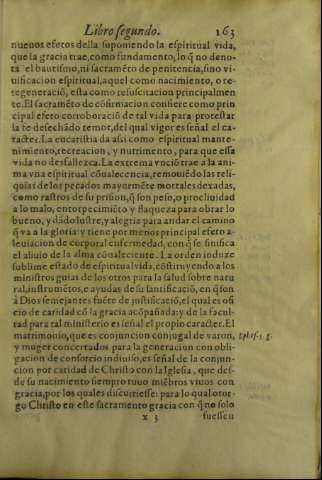 Libro segundo. 163
nueuos efetos della suponiendo la espiritual vida,
que la gracia trae, como fundamento, lo q̃ no deno-
ta el bautismo, ni sacramẽto de penitencia, sino vi-
uificacion espiritual, aquel como nacimiento, o re-
regeneració, esta como resuscitacion principalmen
te. El sacramẽto de cõfirmacion confiere como prin
cipal efeto corroboració de tal vida para protestar
la fe desechãdo temor, del qual vigor es señal el ca-
racter. La eucaristia da assi como espiritual mante-
nimiento, recreacion, y nutrimento, para que essa
vida no desfallezca. La extrema vnció trae a la ani
ma vna espiritual cõualecencia, remouiẽdo las reli-
quias de los pecados mayormẽte mortales dexadas,
como rastros de su prision, q̃ son peso, o procliuidad
a lo malo, entorpecimiẽto y flaqueza para obrar lo
bueno, y dãdo lustre, y alegria para andar el camino
q̃ va a la gloria: y tiene por menos principal efeto a-
leuiacion de corporal enfermedad, con q̃ se sinifica
el aliuio de la alma cõualeciente. La orden induze
sublime estado de espiritual vida, cõstituyendo a los
ministros guias de los otros para la salud sobre natu
ral, instrumẽtos, e ayudas de su santificació, en q̃ son
à Dios semejantes fuẽte de justificació, el qual es ofi
cio de caridad cõ la gracia acõpañada: y de la facul-
tad para tal ministerio es señal el propio caracter. El
matrimonio, que es conjuncion conjugal de varon,
y muger concertados para la generacion con obli-
gacion de consorcio indiuiso, es señal de la conjun-
cion por caridad de Christo con la Iglesia, que des-
de su nacimiento siempro tuuo miẽbros viuos con
gracia, por los quales discurriesse: para lo qual otor-
go Christo en este sacramento gracia con q̃ no solo
Ephes. 5. g.
x 3 fuessen